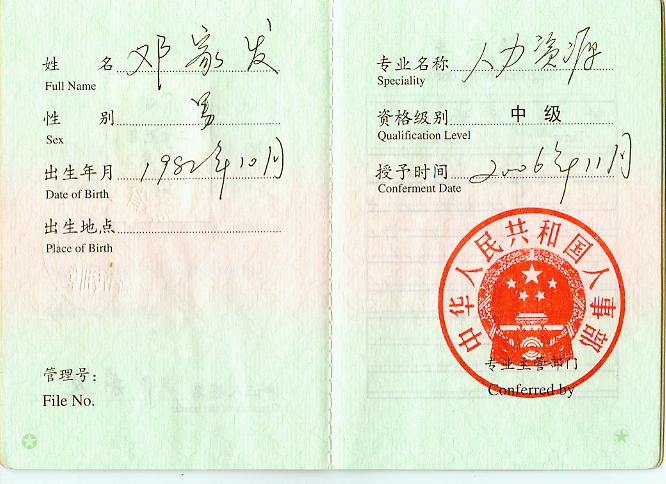 姓 名 邓家发
Full Name
性 别 男
Sex
出生年月 1982年10月
Date of Birth
出生地点
Place of Birth
管理号:
File No.
专业名称 人力资源
Speciality
资格级别 中 级
Qualification Level
授予时间 2006年11月
Conferment Date
中华人民共和国人事部
专业主管部门
Conferred by